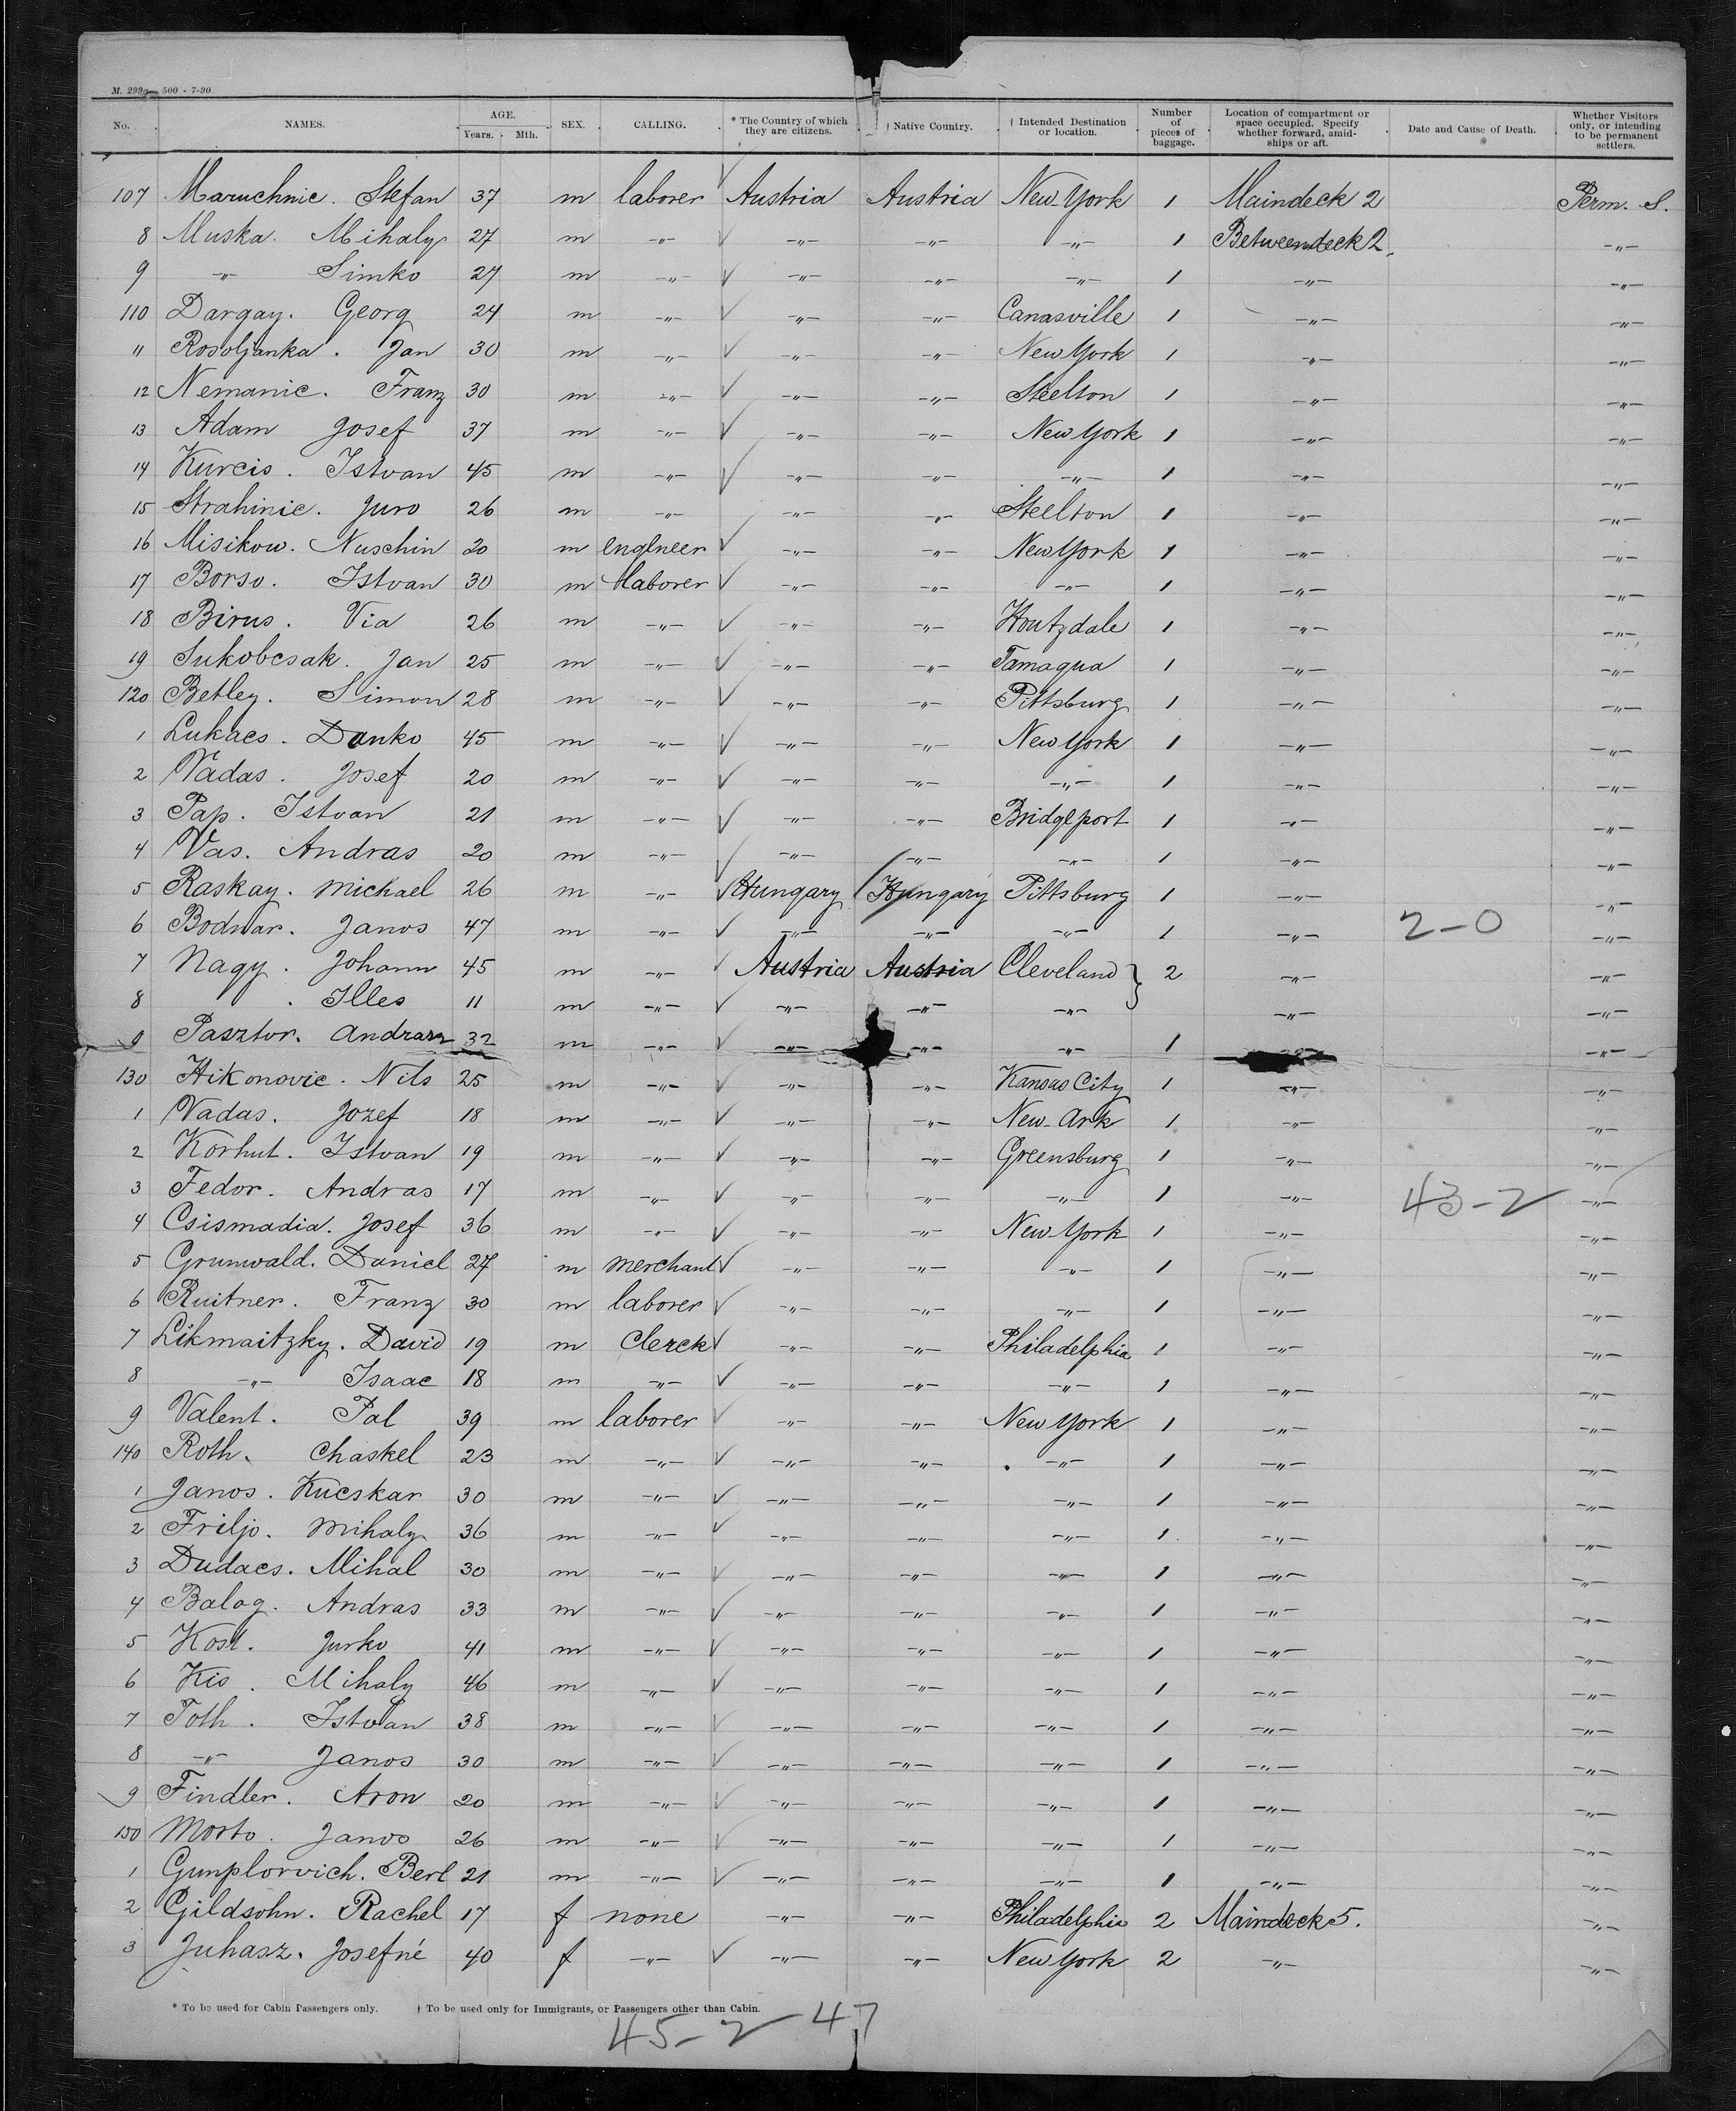 M. 299a 500 - 7-90.
No. NAMES. AGE. Years. Mth. SEX. CALLING. * The Country of which they are citizens. † Native Country. † Intended Destination or location. Number of pieces of baggage. Location of compartment or space occupied. Specify whether forward, amid-ships or aft. Date and Cause of Death. Whether Visitors only, or intending to be permanent settlers.
107 Maruchnic. Stefan 37 m laborer Austria Austria New York 1 Maindeck 2 Perm. S.
8 Muska. Mihaly 27 m -"- ✓ -"- -"- -"- 1 Betweendeck 2. -"-
9 -"- Simko 27 m -"- ✓ -"- -"- -"- 1 -"- -"-
110 Dargay. Georg 24 m -"- ✓ -"- -"- Canasville 1 -"- -"-
11 Rosoljanka. Jan 30 m -"- ✓ -"- -"- New York 1 -"- -"-
12 Nemanic. Franz 30 m -"- ✓ -"- -"- Steelton 1 -"- -"-
13 Adam Josef 37 m -"- ✓ -"- -"- New York 1 -"- -"-
14 Kurcis. Istvan 45 m -"- ✓ -"- -"- -"- 1 -"- -"-
15 Strahinic. Juro 26 m -"- ✓ -"- -"- Steelton 1 -"- -"-
16 Misikow. Nuschin 20 m engineer ✓ -"- -"- New York 1 -"- -"-
17 Borso. Istvan 30 m laborer ✓ -"- -"- -"- 1 -"- -"-
18 Birus. Via 26 m -"- ✓ -"- -"- Houtzdale 1 -"- -"-
19 Sukobcsak. Jan 25 m -"- ✓ -"- -"- Tamaqua 1 -"- -"-
120 Betley. Simon 28 m -"- ✓ -"- -"- Pittsburg 1 -"- -"-
1 Lukacs. Danko 45 m -"- ✓ -"- -"- New York 1 -"- -"-
2 Vadas. Josef 20 m -"- ✓ -"- -"- -"- 1 -"- -"-
3 Pap. Istvan 21 m -"- ✓ -"- -"- Bridgeport 1 -"- -"-
4 Vas. Andras 20 m -"- ✓ -"- -"- -"- 1 -"- -"-
5 Raskay. Michael 26 m -"- ✓ Hungary Hungary Pittsburg 1 -"- -"-
6 Bodnar. Janos 47 m -"- ✓ -"- -"- -"- 1 -"- 2-0 -"-
7 Nagy. Johann 45 m -"- ✓ Austria Austria Cleveland } 2 -"- -"-
8 . Illes 11 m -"- ✓ -"- -"- -"- -"- -"-
9 Pasztor. Andrasz 32 m -"- ✓ -"- -"- -"- 1 -"- -"-
130 Hikonovic. Nils 25 m -"- ✓ -"- -"- Kansas City 1 -"- -"-
1 Vadas. Jozef 18 m -"- ✓ -"- -"- New-Ark 1 -"- -"-
2 Korhut. Istvan 19 m -"- ✓ -"- -"- Greensburg 1 -"- -"-
3 Fedor. Andras 17 m -"- ✓ -"- -"- -"- 1 -"- 43-2 -"-
4 Csismadia. Josef 36 m -"- ✓ -"- -"- New York 1 -"- -"-
5 Grunwald. Daniel 27 m merchant ✓ -"- -"- -"- 1 -"- -"-
6 Ruitner. Franz 30 m laborer ✓ -"- -"- -"- 1 -"- -"-
7 Likmaitzky. David 19 m Clerck ✓ -"- -"- Philadelphia 1 -"- -"-
8 -"- Isaac 18 m -"- ✓ -"- -"- -"- 1 -"- -"-
9 Valent. Pal 39 m laborer ✓ -"- -"- New York 1 -"- -"-
140 Roth. Chaskel 23 m -"- ✓ -"- -"- -"- 1 -"- -"-
1 Janos. Kucskar 30 m -"- ✓ -"- -"- -"- 1 -"- -"-
2 Friljo. Mihaly 36 m -"- ✓ -"- -"- -"- 1 -"- -"-
3 Dudacs. Mihal 30 m -"- ✓ -"- -"- -"- 1 -"- -"-
4 Balog. Andras 33 m -"- ✓ -"- -"- -"- 1 -"- -"-
5 Kost. Jurko 41 m -"- ✓ -"- -"- -"- 1 -"- -"-
6 Kis. Mihaly 46 m -"- ✓ -"- -"- -"- 1 -"- -"-
7 Toth. Istvan 38 m -"- ✓ -"- -"- -"- 1 -"- -"-
8 -"- Janos 30 m -"- ✓ -"- -"- -"- 1 -"- -"-
9 Findler. Aron 20 m -"- ✓ -"- -"- -"- 1 -"- -"-
150 Morto. Janos 26 m -"- ✓ -"- -"- -"- 1 -"- -"-
1 Gunplorvich. Berl 21 m -"- ✓ -"- -"- -"- 1 -"- -"-
2 Gildsohn. Rachel 17 f none -"- -"- Philadelphia 2 Maindeck 5. -"-
3 Juhasz. Josefné 40 f -"- ✓ -"- -"- New York 2 -"- -"-
* To be used for Cabin Passengers only. † To be used only for Immigrants, or Passengers other than Cabin.
45-2 47